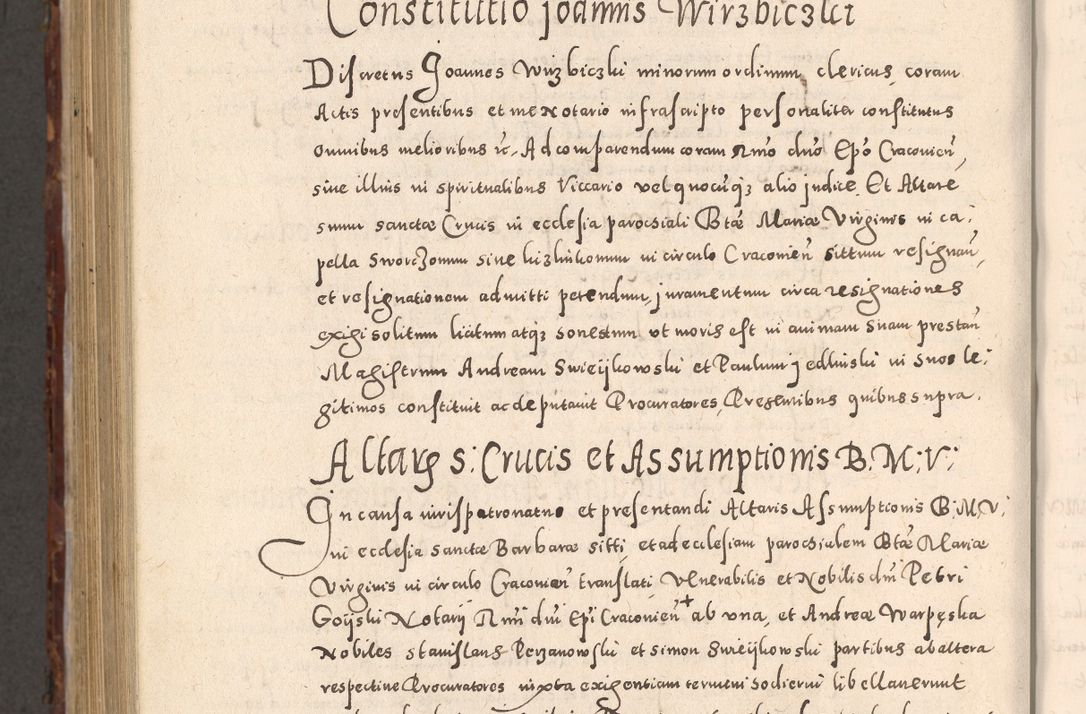 Constitutio Joannis Wirzbiczki
Discretus Joannes Wirzbiczki minorum ordinum clericus, coram
Actis presentibus et me Notario infrascripto personaliter constitutus
omnibus melioribus &c. Ad comparendum coram Rmo dno Epo Cracovien,
sive illius in spiritualibus Viccario vel quocunqȝ alio judice. Et Altare
suum sanctæ Crucis in ecclesia parochiali Btæ Mariæ Virginis in ca:
pella Sworczonum sive in circulo Cracovien sittum resignan,
et resignationem admitti petendum, juramentum circa resignationes
exigi solitum licitum atqȝ honestum ut moris est in animam suam prestan
Magistrum Andream Swieijkowski et Paulum Jedlinski in suos le:
gitimos constituit ac deputavit Procuratores, Presentibus quibus supra.
Altaris S: Crucis et Assumptionis B: M: V:
In causa jurispatronatus et presentandi Altaris Assumptionis B: M: V:
in ecclesia sanctæ Barbaræ sitti, et ad ecclesiam parochialem Btæ Mariæ
Virginis in circulo Cracovien translati, Venerabilis et Nobilis dni Petri
Goijski Notarij Rmi dni Epi Cracovien + ab una, et Andreæ Warpęska
Nobiles Stanislaus Perzanowski et Simon Swieijkowski partibus ab altera
respective Procuratores juxta exigentiam termini hodierni libellaverunt